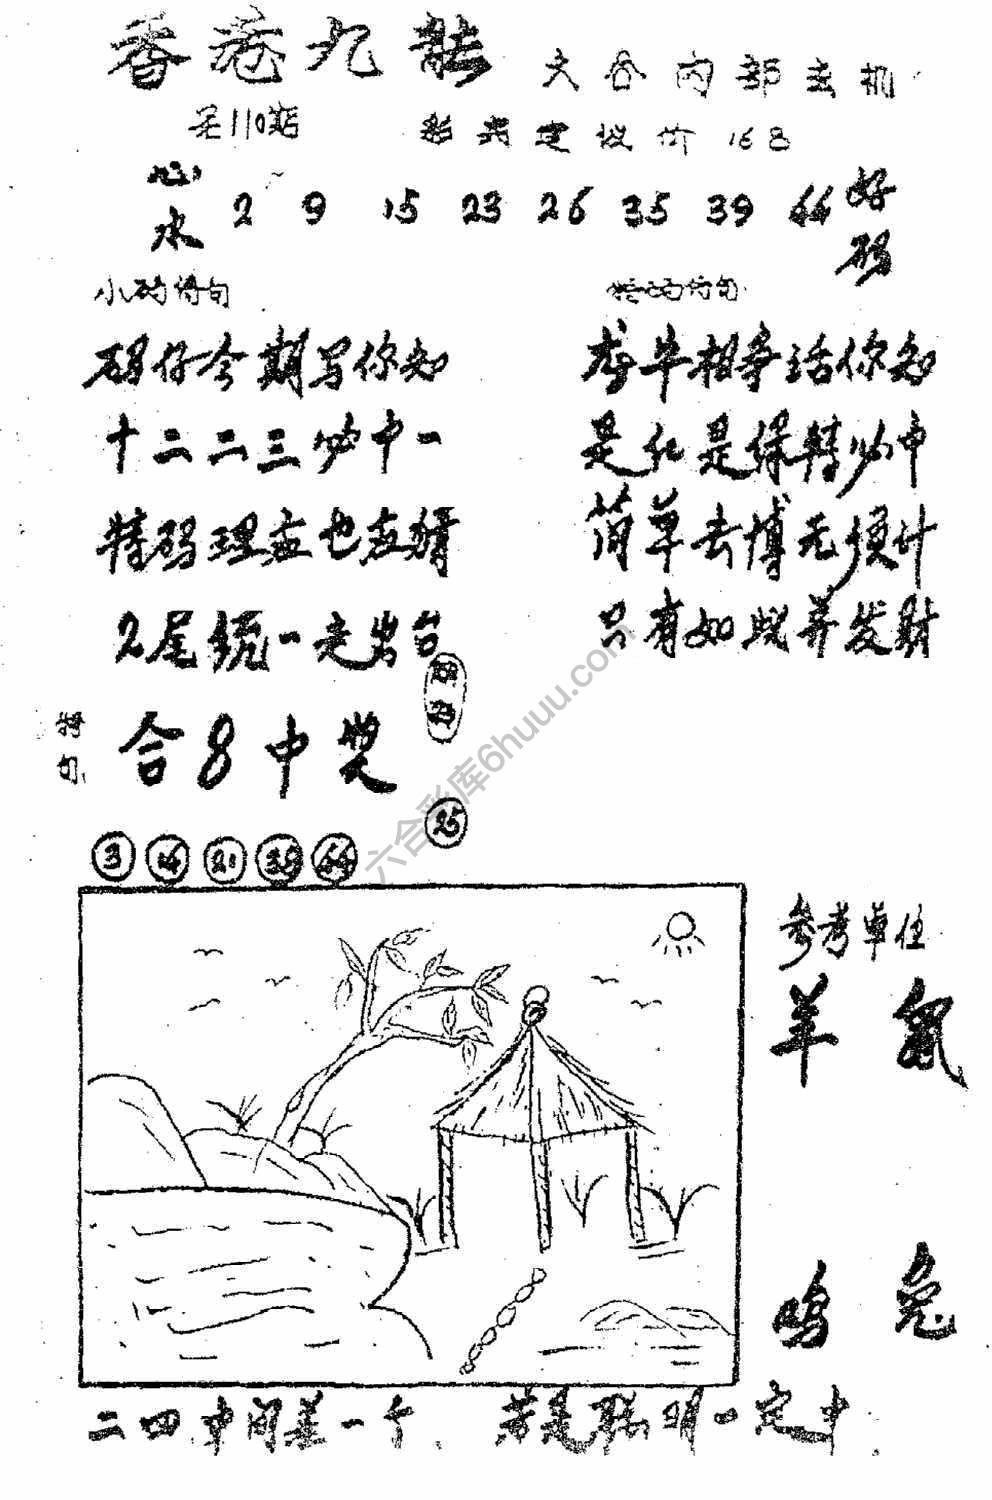 香港九龍 大谷内部玄机
第110期 彩具建议价 168
心水 2 9 15 23 26 35 39 44 好码
小码诗句 特码诗句
码仔今期写你知 龙牛相争话你知
十二二三必中一 是红是绿特必中
特码理应也友缘 简单去博无须计
2尾统一走出台 只有如此并发财
特句 合8中奖
25
3 14 21 35 44
参考单位
羊 鼠
鸡 兔
二四中间差一个、若是聪明一定中
六合彩库6huuu.com